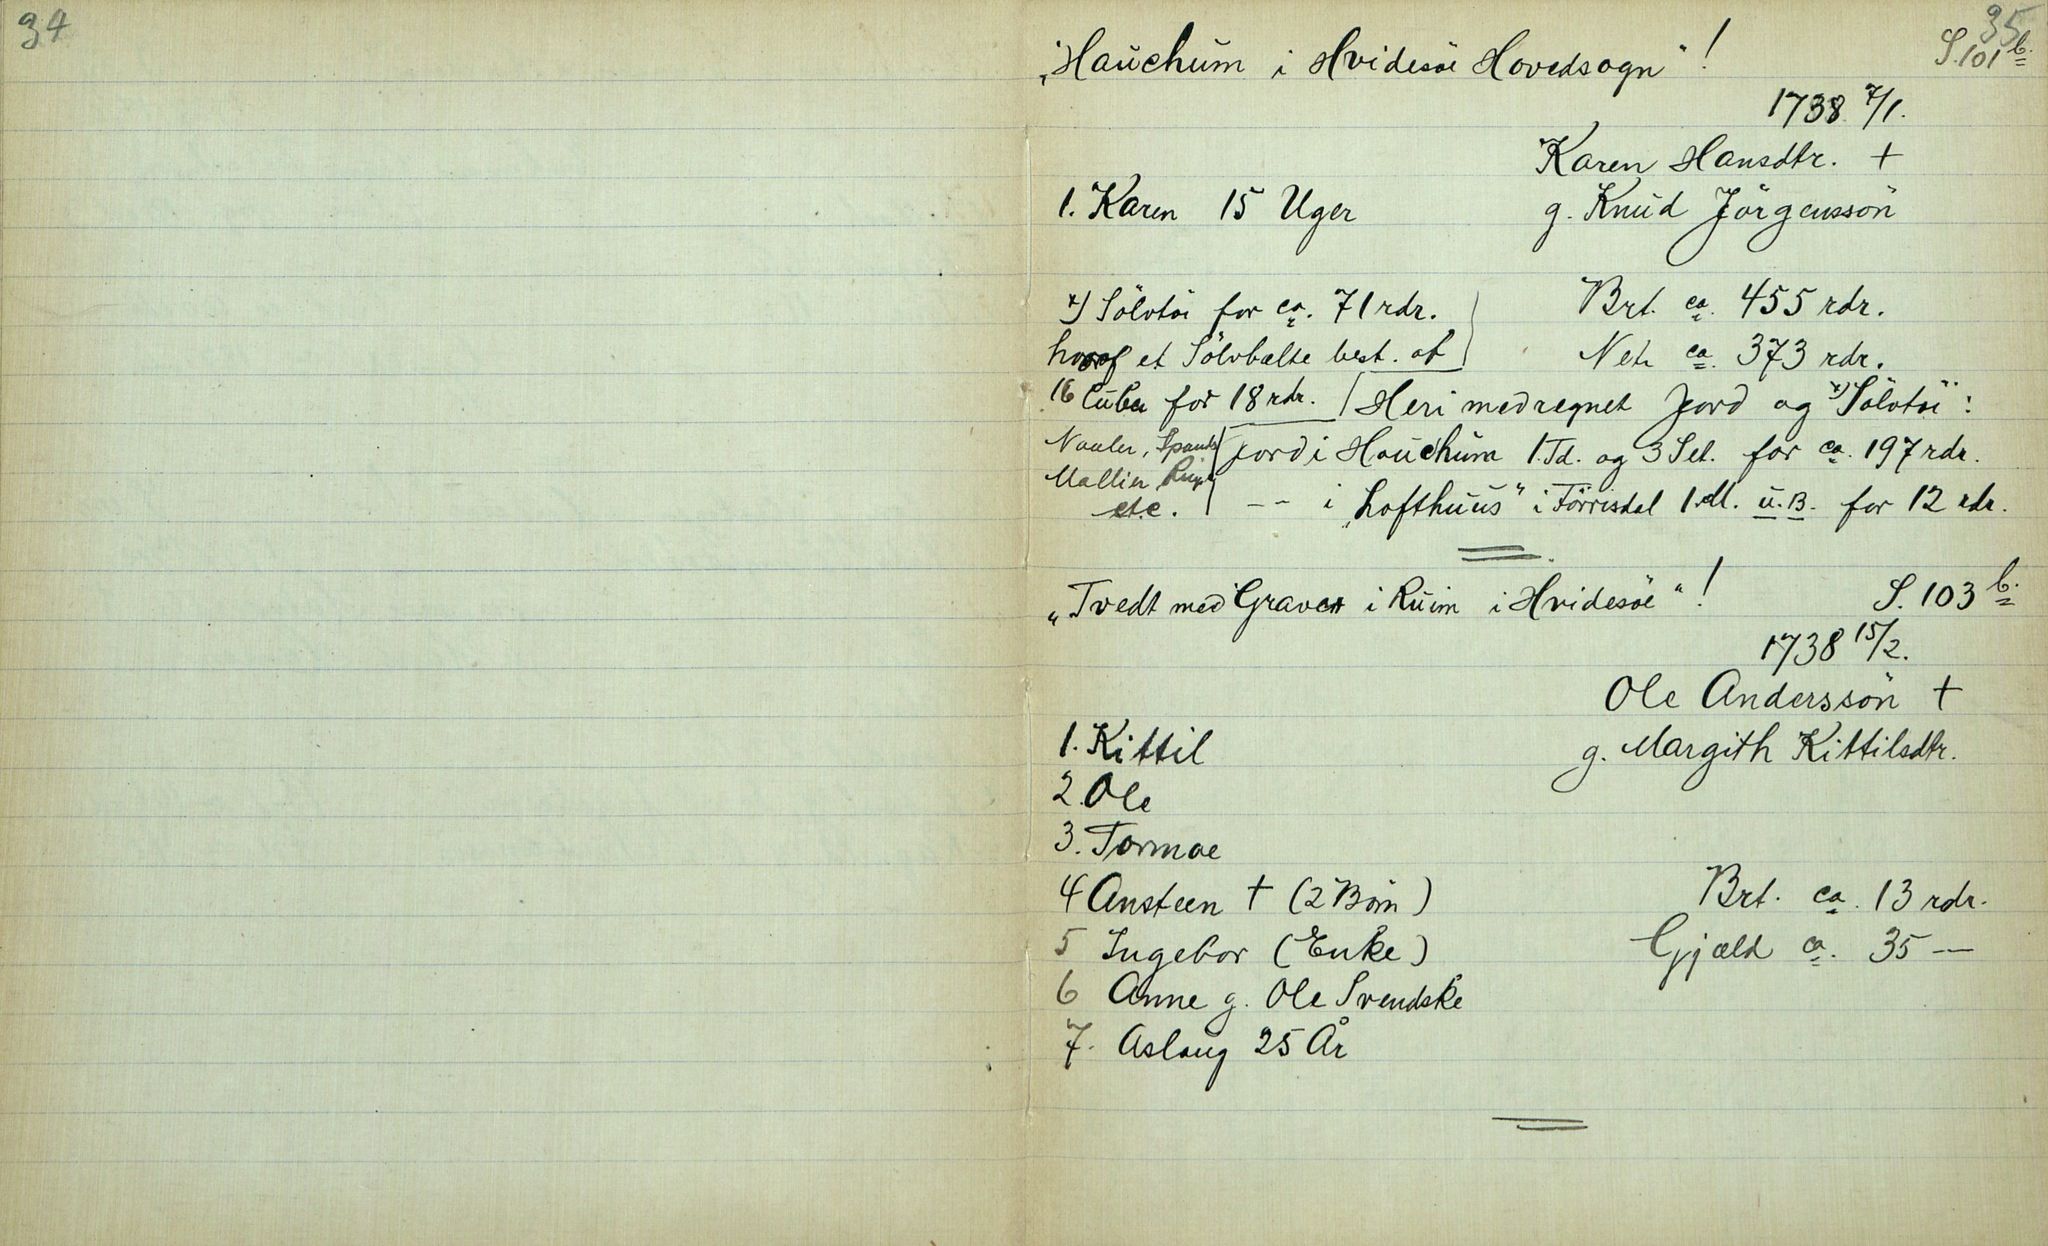 34
35
„Hauchum i Hvidesöe Hovedsogn“!
S. 101 b.
1738 7/1.
Karen Hansdtr. +
1. Karen 15 Uger
g. Knud Jörgenssön
x) Sölvtöi for ca. 71 rdr.
Brt. ca. 455 rdr.
hvoraf et Sölvbælte best. af
Net. ca. 373 rdr.
16 for 18 rdr.
Heri medregnet Jord og x) Sölvtöi:
Naaler,
Jord i Hauchum 1 Td. og 3 Set. for ca. 197 rdr.
Mallier
etc.
-- i „Lofthuus“ i Förrisdal 1 M. u. B. for 12 rdr.
„Tvedt med Graver i Ruim i Hvidesöe“!
S. 103 b.
1738 15/2.
Ole Anderssön +
1. Kittil
g. Margith Kittilsdtr.
2. Ole
3. Tormoe
4 Ansteen + (2 Börn)
Brt. ca. 13 rdr.
5 Ingebor (Enke)
Gjæld ca. 35 —
6 Anne g. Ole Svendske
7. Aslaug 25 År